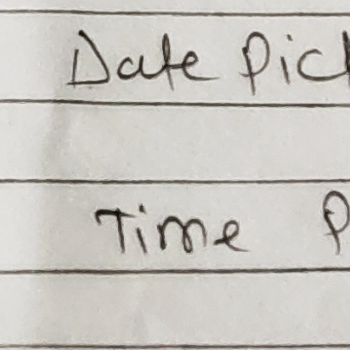 Date Pick
Time P